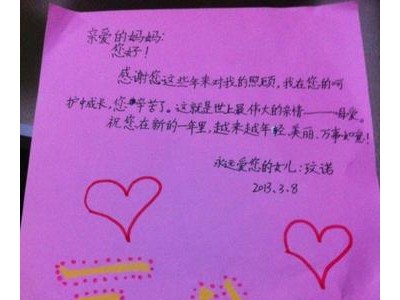 亲爱的妈妈:
您好!
感谢您这些年来对我的照顾,我在您的呵
护中成长,您辛苦了。这就是世上最伟大的亲情——母爱。
祝您在新的一年里,越来越年轻、美丽、万事如意!
永远爱您的女儿:玟诺
2013.3.8